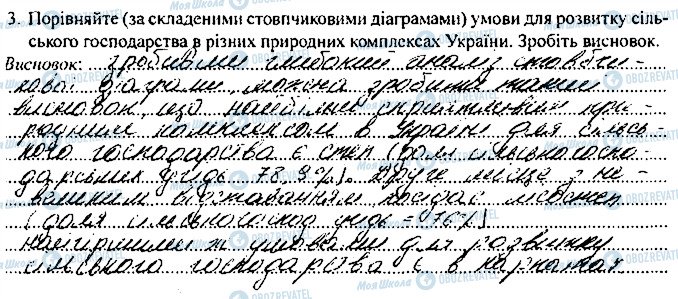 3. Порівняйте (за складеними стовпчиковими діаграмами) умови для розвитку сіль-
ського господарства в різних природних комплексах України. Зробіть висновок.
Висновок: зробивши глибокий аналіз стовпчи-
кової діаграми, можна зробити такий
висновок, що найбільш сприятливим при-
родним комплексом в Україні для сільсь-
кого господарства є степ (доля сільськогоспо-
дарських угідь 78,9%). Друге місце з не-
великим відставанням посідає лісостеп
(доля сільськогоспод угідь = 76%)
найгіршими ж умовами для розвитку
сільського господарства є в Карпатах